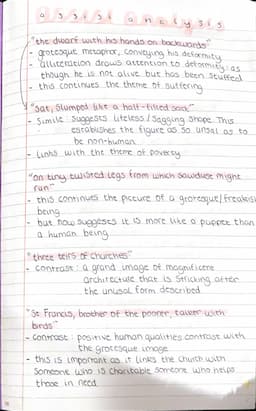 assisi analysis
"the dwarf with his hands on backwards"
- grotesque metaphor, conveying his deformity
- alliteration draws attention to deformity: as
though he is not alive but has been stuffed
- this continues the theme of suffering
"sat, slumped like a half-filled sack"
- Simile: suggests lifeless / sagging shape. This
establishes the figure as so unsal as to
be non-human.
- Links with the theme of poverty
"on tiny twisted legs from which sawdust might
run"
- this continues the picture of a grotesque/freakish
being
- but now suggests it is more like a puppet than
a human being.
"three teirs of churches"
- contrast: a grand image of magnificent
architecture that is striking after
the unusal form described
"St Francis, brother of the poorer, talker with
birds"
- contrast: positive human qualities contrast with
the grotesque image
- this is important as it links the church with
someone who is charitable someone who helps
those in need